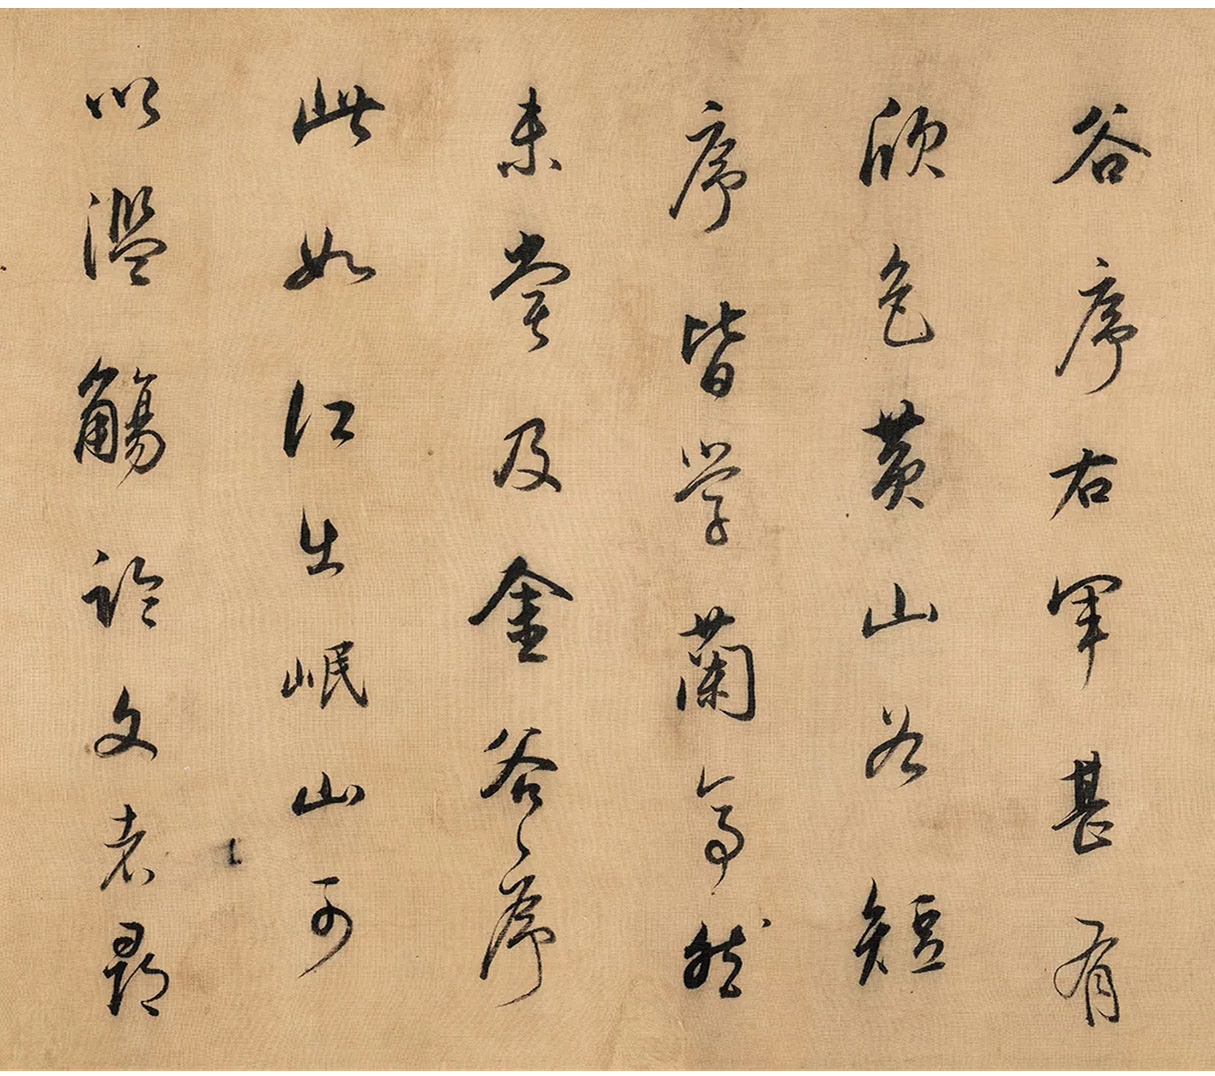 谷序右軍甚有
欣色黄山谷短
序皆学蘭亭然
未嘗及金谷序
此如江出岷山可
以濫觴論文者